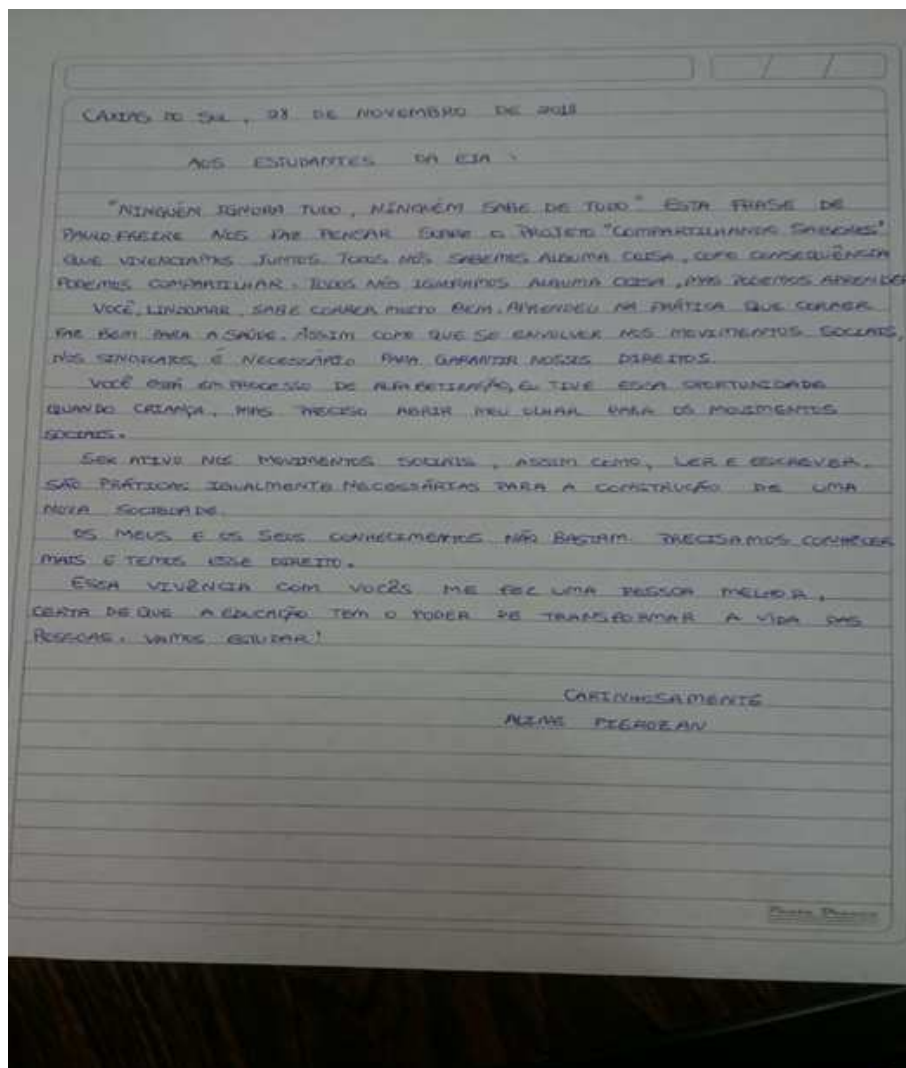 CAXIAS DO SUL, 28 DE NOVEMBRO DE 2018
AOS ESTUDANTES DA EJA
"NINGUÉM IGNORA TUDO, NINGUÉM SABE DE TUDO" ESTA FRASE DE
PAULO FREIRE NOS FAZ PENSAR SOBRE O PROJETO "COMPARTILHANDO SABERES"
QUE VIVENCIAMOS JUNTOS. TODOS NÓS SABEMOS ALGUMA COISA, COMO CONSEQUÊNCIA
PODEMOS COMPARTILHAR. TODOS NÓS IGNORAMOS ALGUMA COISA, MAS PODEMOS APRENDER
VOCÊ, LINDOMAR, SABE CORRER MUITO BEM, APRENDEU NA PRÁTICA QUE CORRER
FAZ BEM PARA A SAÚDE. ASSIM COMO QUE SE ENVOLVER NOS MOVIMENTOS SOCIAIS,
NOS SINDICATOS, É NECESSÁRIO PARA GARANTIR NOSSOS DIREITOS.
VOCÊ ESTÁ EM PROCESSO DE ALFABETIZAÇÃO, EU TIVE ESSA OPORTUNIDADE
QUANDO CRIANÇA, MAS PRECISO ABRIR MEU OLHAR PARA OS MOVIMENTOS
SOCIAIS.
SER ATIVO NOS MOVIMENTOS SOCIAIS, ASSIM COMO, LER E ESCREVER,
SÃO PRÁTICAS IGUALMENTE NECESSÁRIAS PARA A CONSTRUÇÃO DE UMA
NOVA SOCIEDADE.
OS MEUS E OS SEUS CONHECIMENTOS NÃO BASTAM. PRECISAMOS CONHECER
MAIS E TEMOS ESSE DIREITO.
ESSA VIVÊNCIA COM VOCÊS ME FEZ UMA PESSOA MELHOR,
CERTA DE QUE A EDUCAÇÃO TEM O PODER DE TRANSFORMAR A VIDA DAS
PESSOAS. VAMOS ESTUDAR!
CARINHOSAMENTE
ALINE PIEROZAN